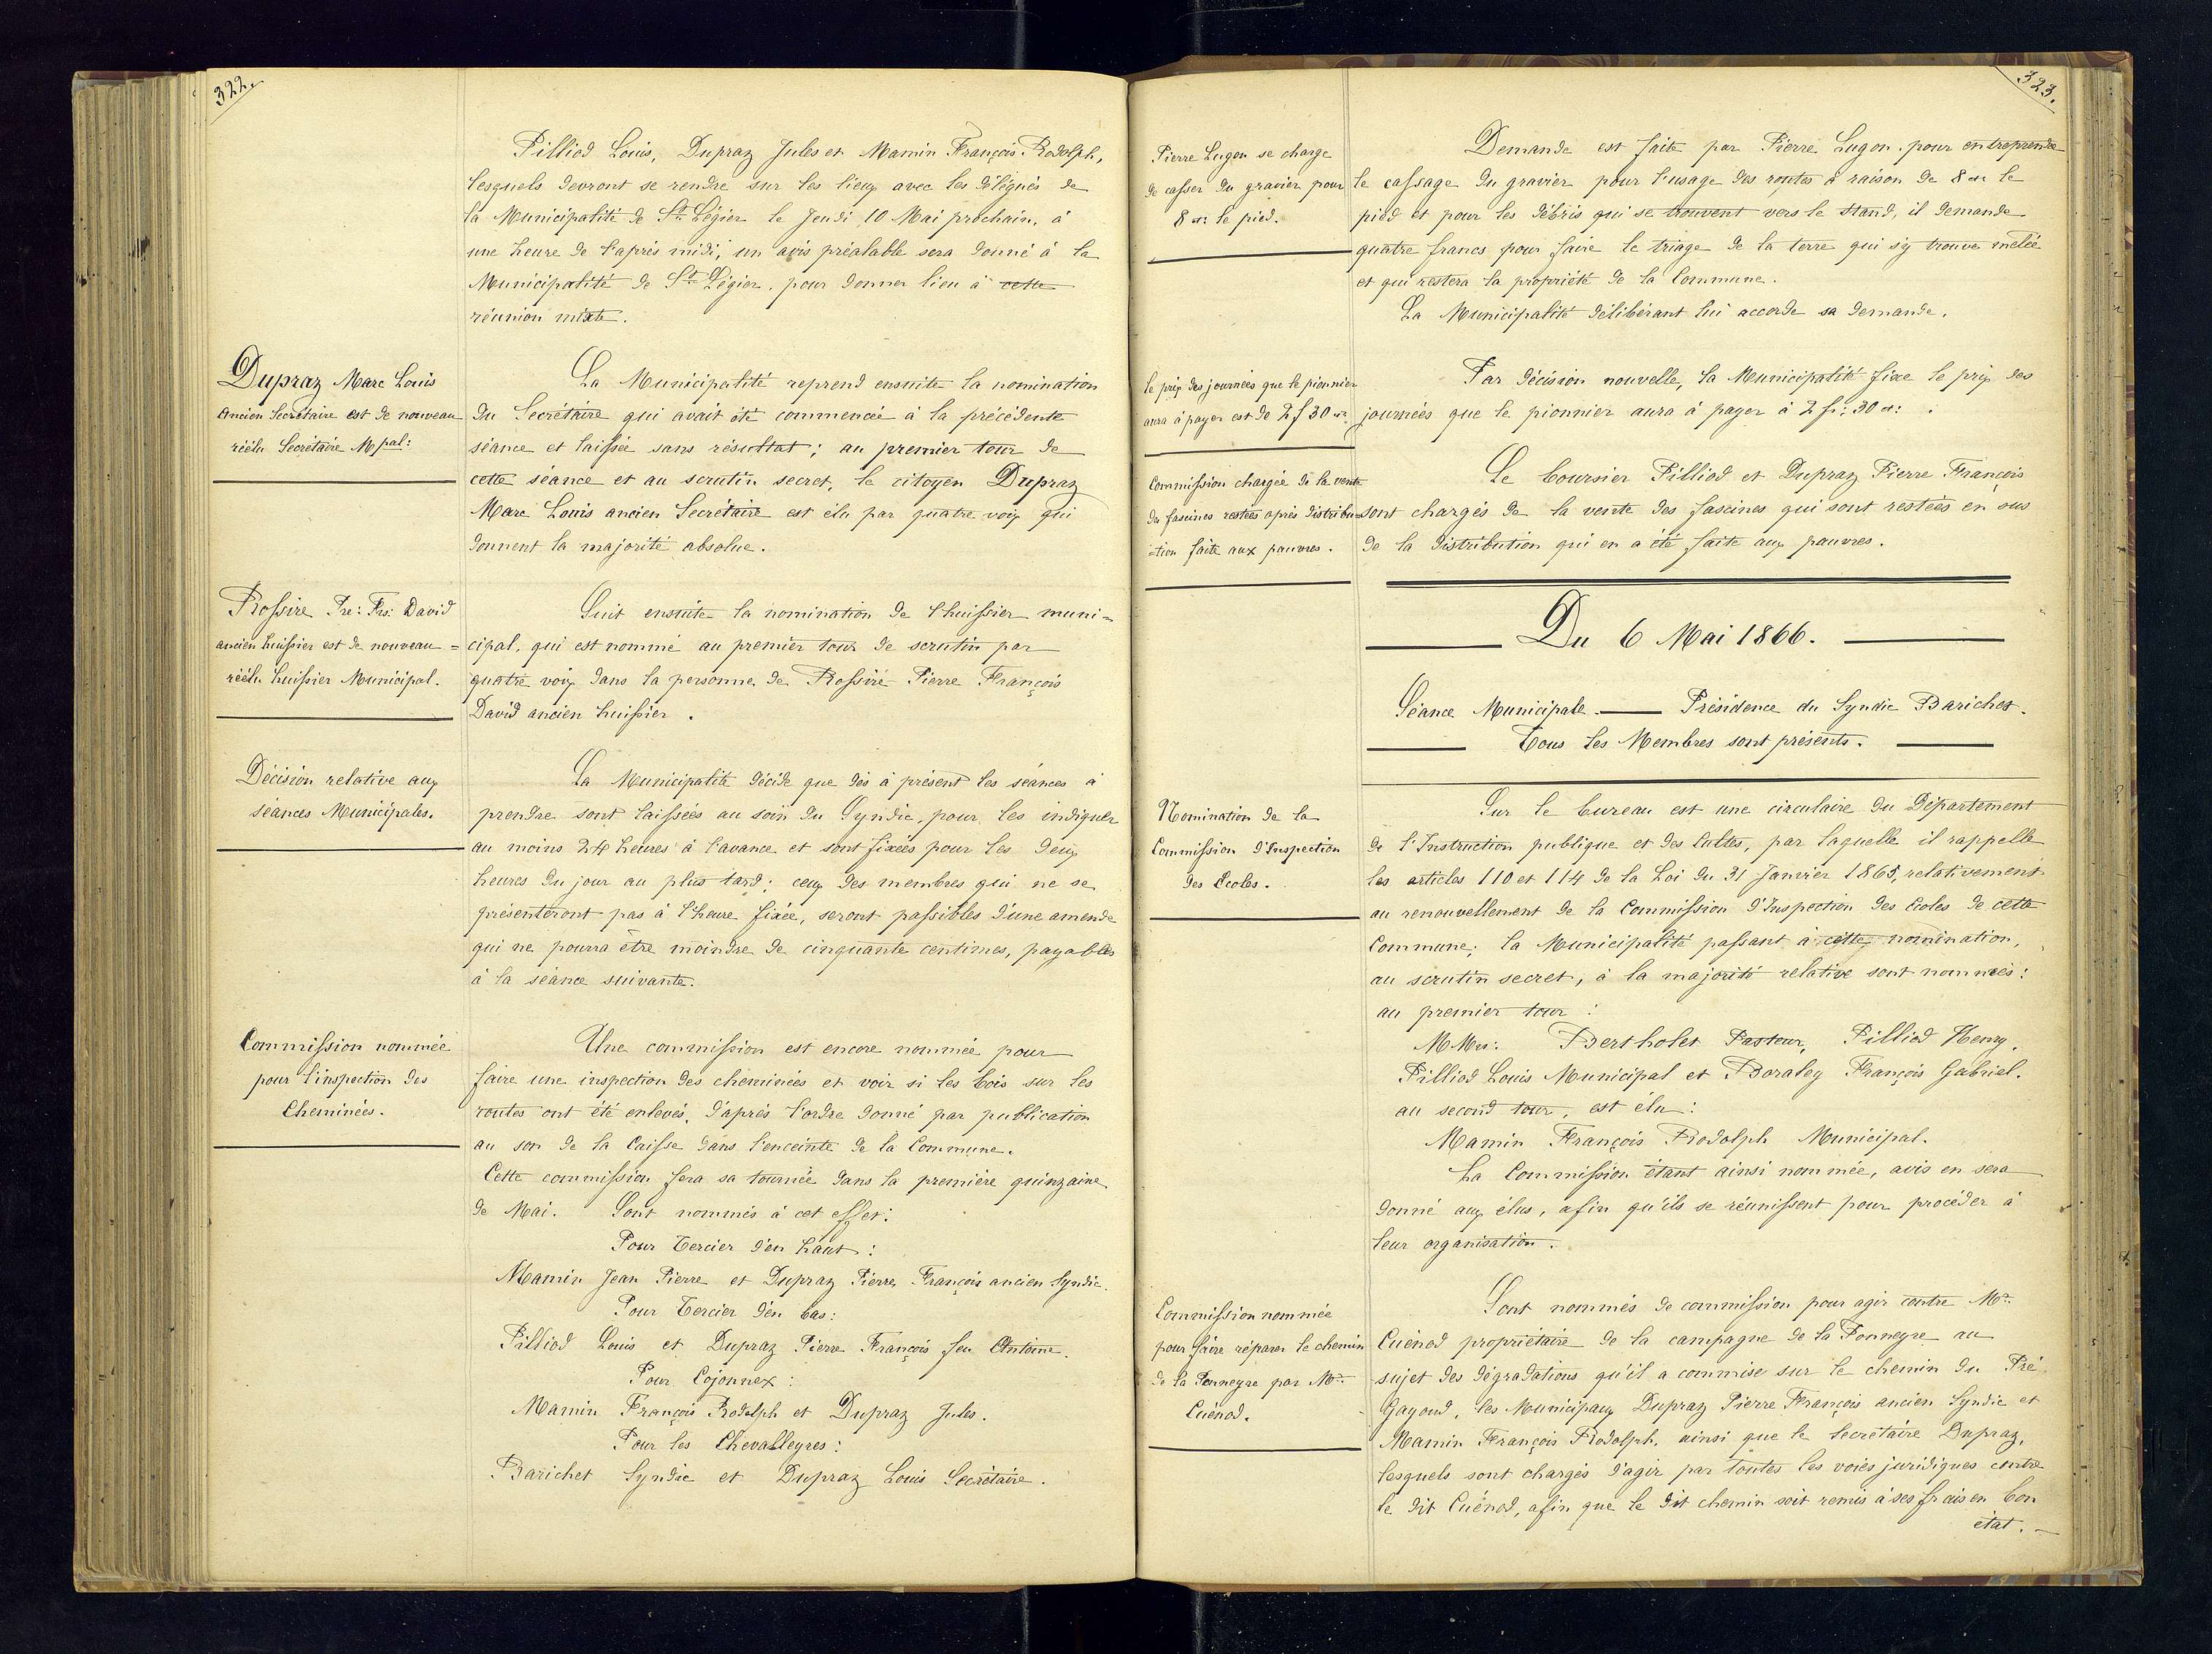 322.
Pilliod Louis, Dupraz Jules et Mamin François Rodolph,
lesquels devront se rendre sur les lieux avec les délégués de
la Municipalité de St. Légier le Jeudi 10 Mai prochain, à
une heure de l'après midi, un avis préalable sera donné à la
Municipalité de St. Légier, pour donner lieu à cette
réunion mixte.
Dupraz Marc Louis
Ancien Secrétaire est de nouveau
réélu Secrétaire Mpal:
La Municipalité reprend ensuite la nomination
du Secrétaire qui avait été commencée à la précédente
séance et laissée sans résultat; au premier tour de
cette séance et au scrutin secret, le citoyen Dupraz
Marc Louis ancien Secrétaire est élu par quatre voix qui
donnent la majorité absolue.
Rossire Pre: Frs: David
ancien huissier est de nouveau =
réélu huissier Municipal.
Suit ensuite la nomination de l'huissier muni=
cipal, qui est nommé au premier tour de scrutin par
quatre voix dans la personne de Rossire Pierre François
David ancien huissier.
Décision relative aux
séances Municipales.
La Municipalité décide que dès à présent les séances à
prendre sont laissées au soin du Syndic, pour les indiquer
au moins 24 heures à l'avance et sont fixées pour les deux
heures du jour au plus tard; ceux des membres qui ne se
présenteront pas à l'heure fixée, seront passibles d'une amende
qui ne pourra être moindre de cinquante centimes, payables
à la séance suivante.
Commission nommée
pour l'inspection des
Cheminées.
Une commission est encore nommée pour
faire une inspection des cheminées et voir si les bois sur les
routes ont été enlevés, d'après l'ordre donné par publication
au son de la Caisse dans l'enceinte de la Commune.
Cette commission fera sa tournée dans la première quinzaine
de Mai. Sont nommés à cet effet:
Pour Tercier d'en haut:
Mamin Jean Pierre et Dupraz Pierre François ancien Syndic.
Pour Tercier d'en bas:
Pilliod Louis et Dupraz Pierre François feu Antoine.
Pour Cojonnex:
Mamin François Rodolph et Dupraz Jules.
Pour les Chevalleyres:
Barichet Syndic et Dupraz Louis Secrétaire.
323.
Pierre Lugon se charge
de casser du gravier pour
8 ct: le pied.
Demande est faite par Pierre Lugon pour entreprendre
le cassage du gravier pour l'usage des routes à raison de 8 ct le
pied et pour les débris qui se trouvent vers le Stand, il demande
quatre francs pour faire le triage de la terre qui s'y trouve mêlée
et qui restera la propriété de la Commune.
La Municipalité délibérant lui accorde sa demande.
le prix des journées que le pionnier
aura à payer est de 2 f 30 ct
Par décision nouvelle, la Municipalité fixe le prix des
journées que le pionnier aura à payer à 2 fr: 30 ct:
Commission chargée de la vente
des fascines restées après distribu=
=tion faite aux pauvres.
Le boursier Pilliod et Dupraz Pierre François
sont chargés de la vente des fascines qui sont restées en sus
de la distribution qui en a été faite aux pauvres.
Du 6 Mai 1866.
Séance Municipale. Présidence du Syndic Barichet.
Tous les Membres sont présents.
Nomination de la
Commission d'Inspection
des Ecoles.
Sur le bureau est une circulaire du Département
de l'Instruction publique et des Cultes, par laquelle il rappelle
les articles 110 et 114 de la Loi du 31 Janvier 1865, relativement
au renouvellement de la Commission d'Inspection des Ecoles de cette
Commune; la Municipalité passant à cette nomination,
au scrutin secret, à la majorité relative sont nommés:
au premier tour:
MMrs: Bertholet Pasteur, Pilliod Henry,
Pilliod Louis Municipal et Boraley François Gabriel.
au second tour, est élu:
Mamin François Rodolph Municipal.
La Commission étant ainsi nommée, avis en sera
donné aux élus, afin qu'ils se réunissent pour procéder à
leur organisation.
Commission nommée
pour faire réparer le chemin
de la Ponneyre par Mr:
Cuénod.
Sont nommés de commission pour agir contre Mr:
Cuénod propriétaire de la campagne de la Ponneyre au
sujet des dégradations qu'il a commise sur le chemin du Pré
Gayoud, les Municipaux Dupraz Pierre François ancien Syndic et
Mamin François Rodolph, ainsi que le secrétaire Dupraz,
lesquels sont chargés d'agir par toutes les voies juridiques contre
le dit Cuénod, afin que le dit chemin soit remis à ses frais en bon
état.